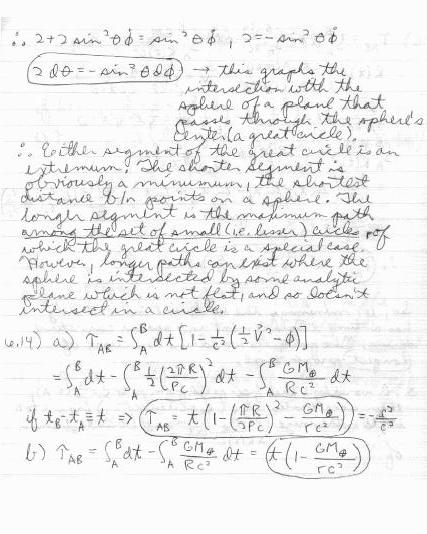 ∴ 2+2 sin²θ φ̇ = sin²θ φ̇ , 2 = -sin²θ φ̇
2 dθ = -sin²θ dφ → this graphs the
intersection with the
sphere of a plane that
passes through the sphere's
center (a great circle).
∴ Either segment of the great circle is an
extremum. The shorter segment is
obviously a minumum, the shortest
distance b/n points on a sphere. The
longer segment is the maximum path
among the set of small (i.e. lesser) circles of
which the great circle is a special case.
However, longer paths can exist where the
sphere is intersected by some analytic
plane which is not flat, and so doesn't
intersect in a circle.
6.14) a) τ_AB = ∫_A^B dt [1 - 1/c² (½ V² - φ)]
= ∫_A^B dt - ∫_A^B ½ (2πR/Pc)² dt - ∫_A^B GM⊕/Rc² dt
if t_B - t_A ≡ t => τ_AB = t (1 - (πR/2Pc)² - GM⊕/rc²) =
b) τ_AB = ∫_A^B dt - ∫_A^B GM⊕/Rc² dt = t (1 - GM⊕/rc²)